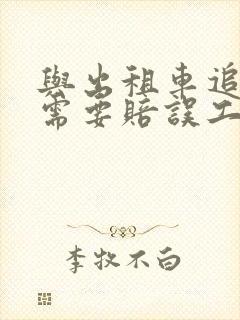 與出租車追
需要賠誤工
李牧不白